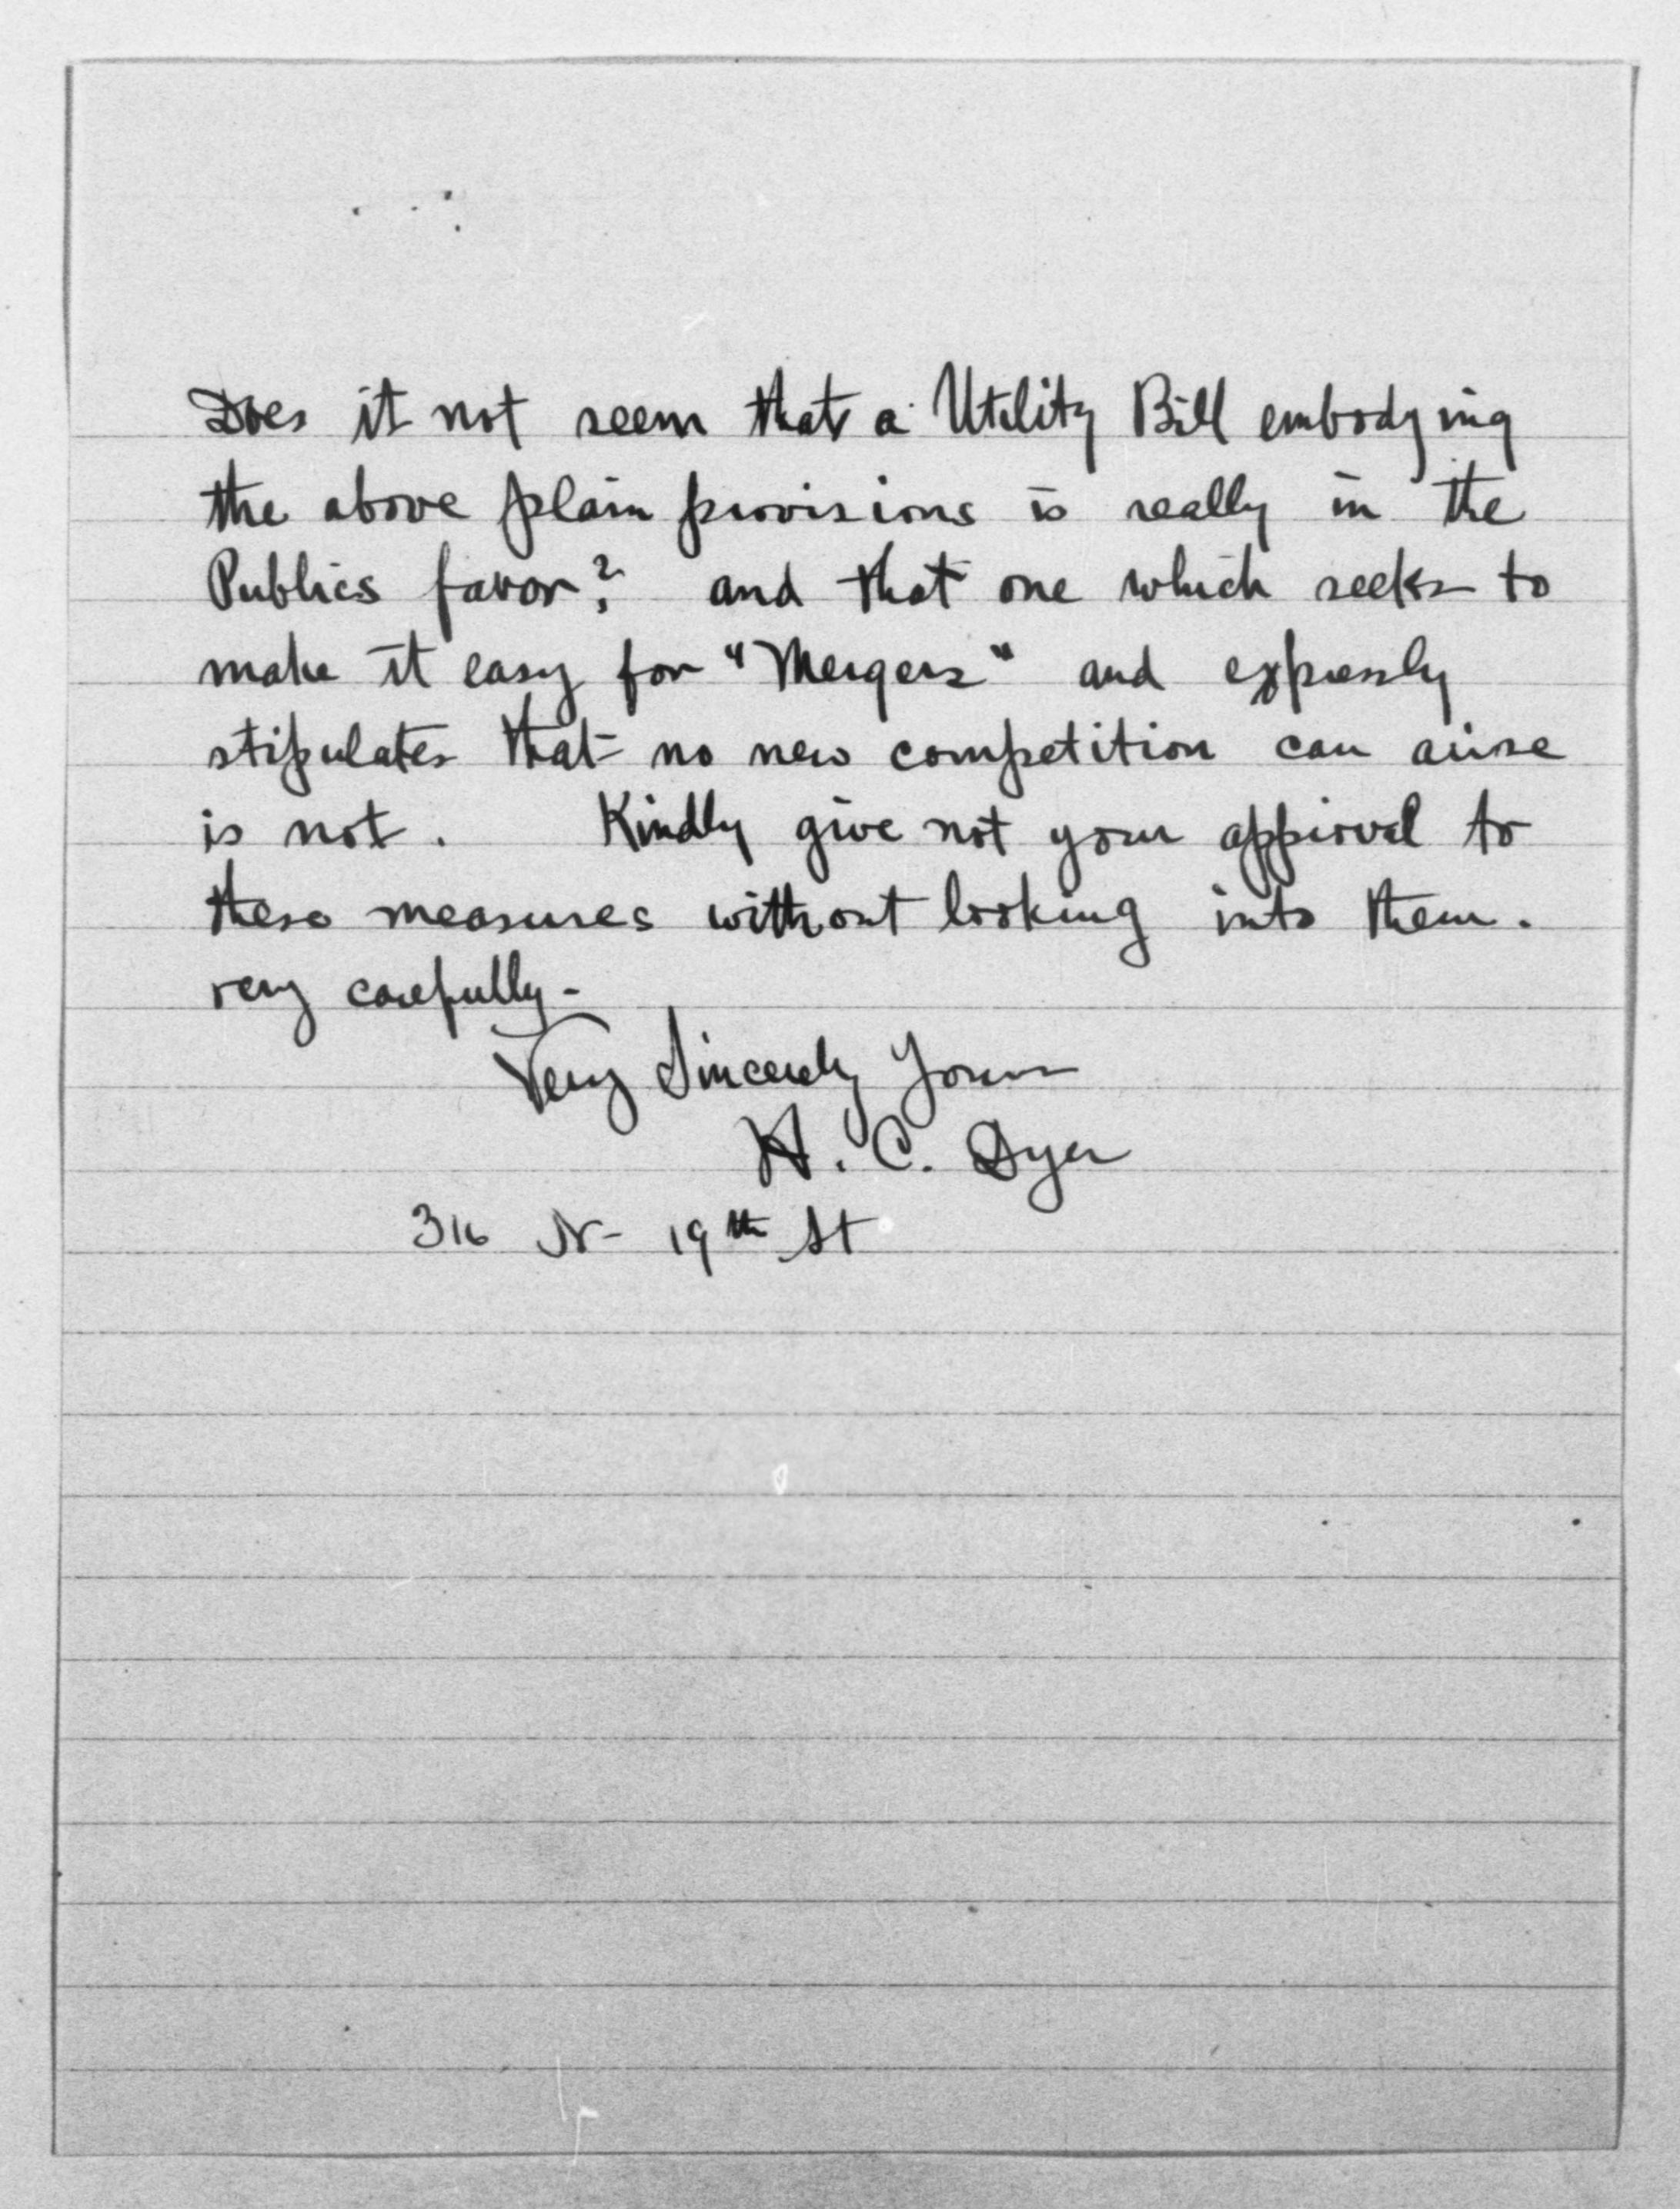 Does it not seem that a Utility Bill embodying
the above plain provisions is really in the
Publics favor? and that one which seeks to
make it easy for "Mergers" and expressly
stipulates that no new competition can arise
is not. Kindly give not your approval to
these measures without looking into them.
very carefully-
Very Sincerely Yours
H. C. Dyer
316 N- 19th St